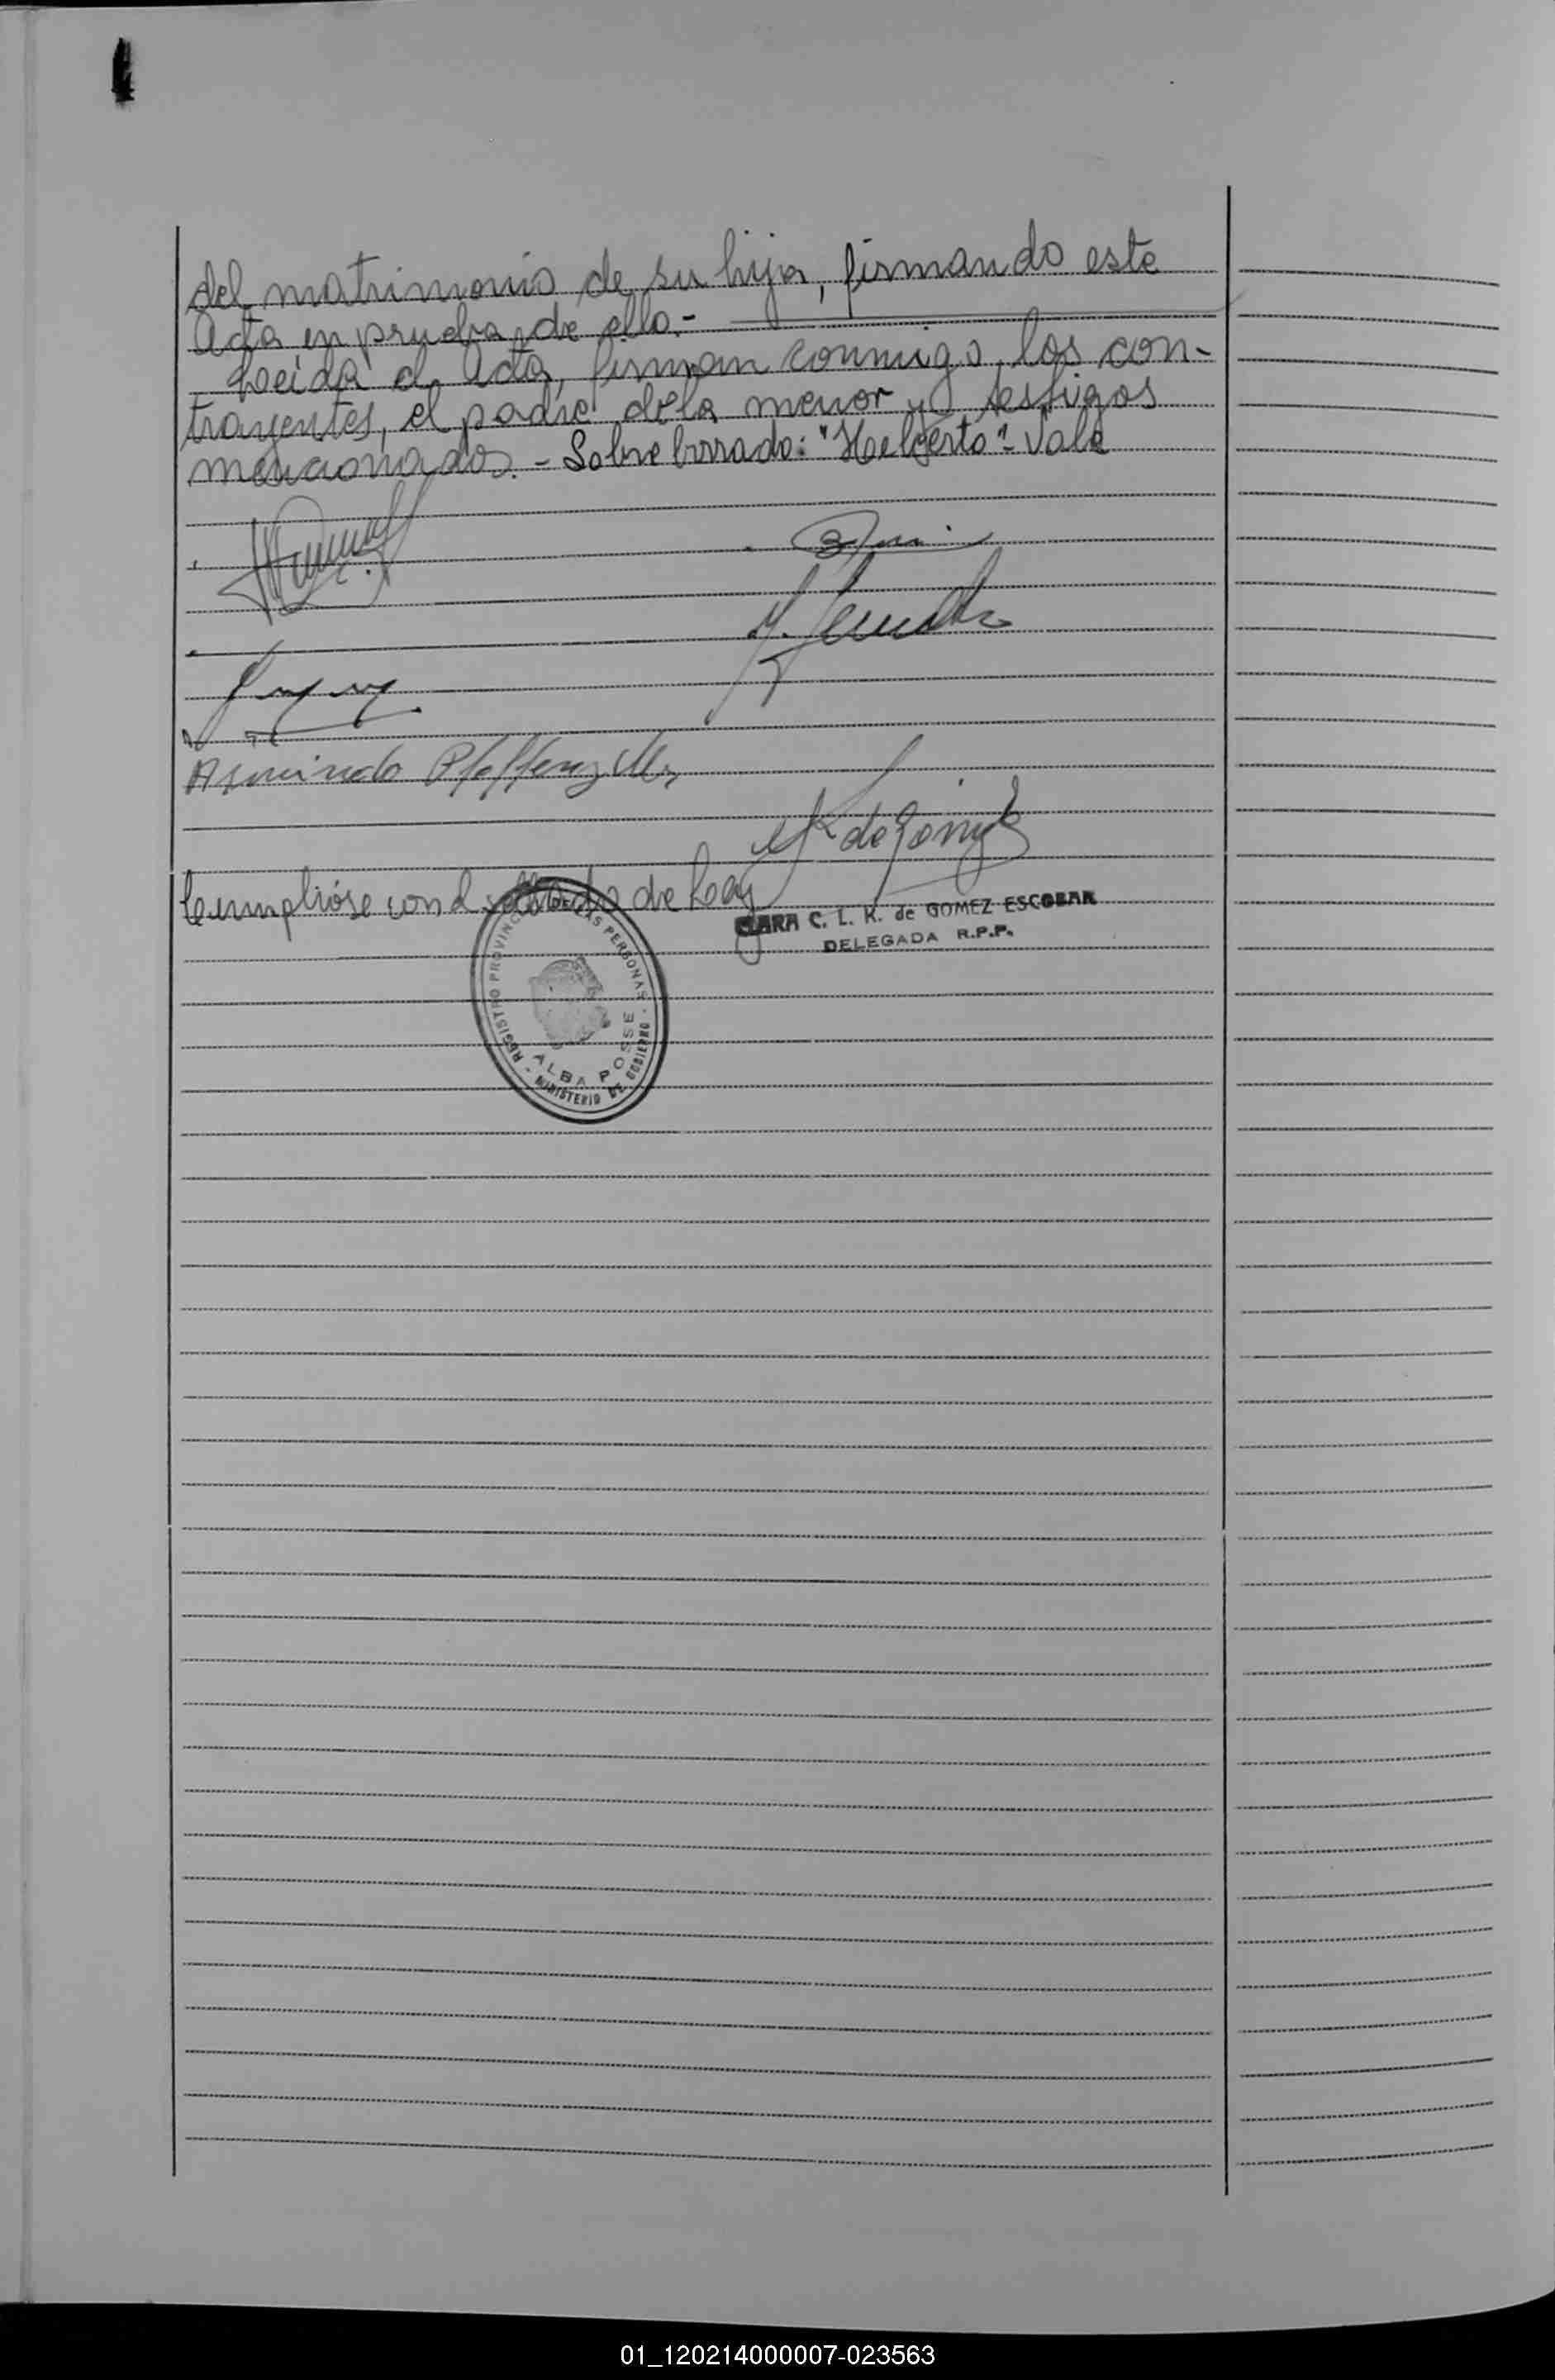 del matrimonio de su hija, firmando este
Acta en prueba de ello.-
Leída el Acta, firman conmigo, los con-
trayentes, el padre de la menor y testigos
mencionados.- Sobre borrado: "Helgerto"- Vale
Armindo Pfaffenzeller
K de Gómez E
Cumplióse con el sellado de Ley
CLARA C. L. K. de GOMEZ ESCOBAR
DELEGADA R.P.P.
REGISTRO PROVINCIAL DE LAS PERSONAS
ALBA POSSE
- MINISTERIO DE GOBIERNO -
01_120214000007-023563